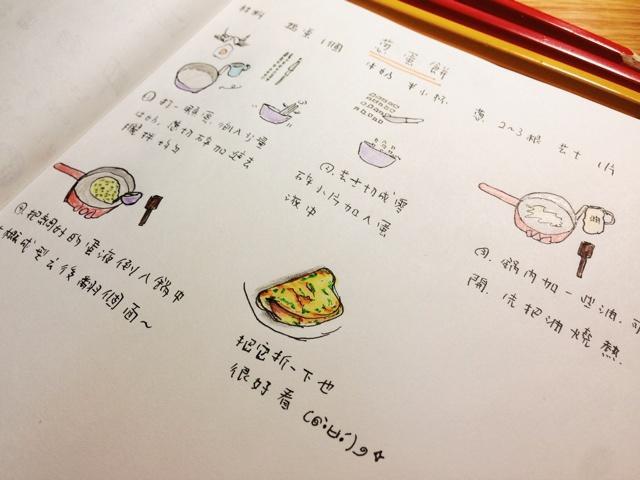 蔥蛋餅
材料 雞蛋 1個 牛奶 半小杯 蔥 2~3根 芝士 1片
①打一顆蛋,倒入少量
牛奶,蔥切碎加進去
攪拌均勻
②.芝士切成零
碎小片加入蛋
液中
③.鍋內加一些油,可
開,先把油燒熱
④.把調好的蛋液倒入鍋中
概成型之後翻個面~
把它折一下也
很好看